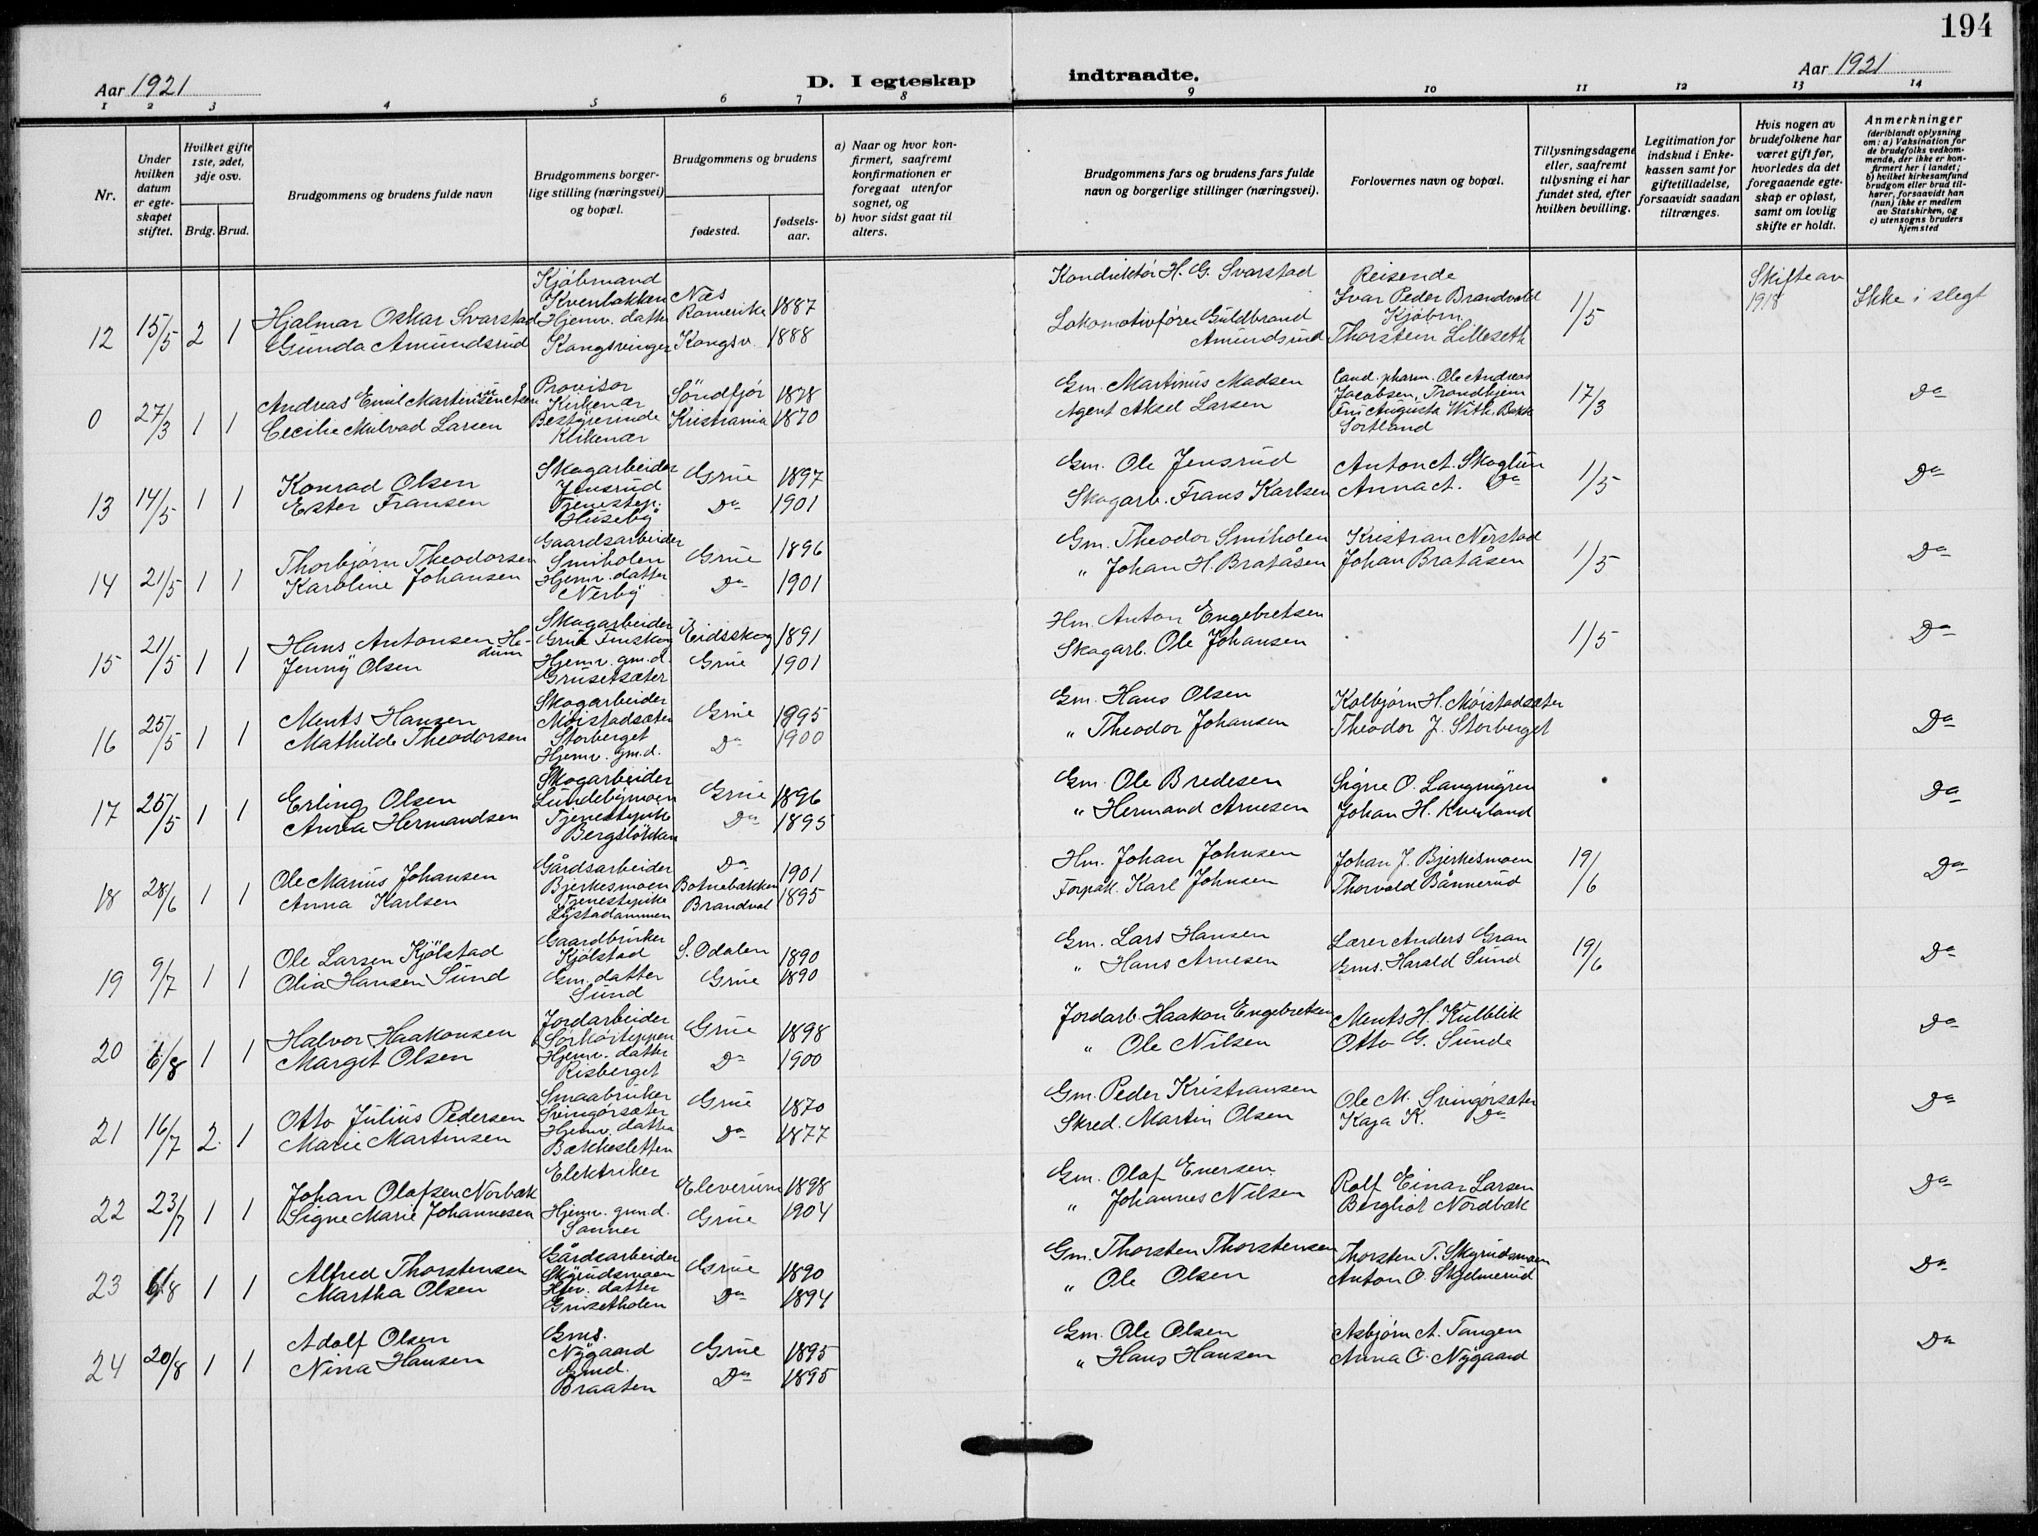 194
Aar 1921
D. I egteskap indtraadte.
Aar 1921
1 2 3 4 5 6 7 8 9 10 11 12 13 14
Nr.
Under hvilken datum er egteskapet stiftet.
Hvilket gifte 1ste, 2det, 3dje osv.
Brdg. Brud.
Brudgommens og brudens fulde navn
Brudgommens borgerlige stilling (næringsvei) og bopæl.
Brudgommens og brudens
fødested.
fødselsaar.
a) Naar og hvor konfirmert, saafremt konfirmationen er foregaat utenfor sognet, og
b) hvor sidst gaat til alters.
Brudgommens fars og brudens fars fulde navn og borgerlige stillinger (næringsvei).
Forlovernes navn og bopæl.
Tillysningsdagene eller, saafremt tillysning ei har fundet sted, efter hvilken bevilling.
Legitimation for indskud i Enkekassen samt for giftetilladelse, forsaavidt saadan tiltrænges.
Hvis nogen av brudefolkene har været gift før, hvorledes da det foregaaende egteskap er opløst, samt om lovlig skifte er holdt.
Anmerkninger
(deriblandt oplysning om: a) Vaksination for de brudefolks vedkommende, der ikke er konfirmert her i landet; b) hvilket kirkesamfund brudgom eller brud tilhører, forsaavidt han (hun) ikke er medlem av Statskirken, og c) utensogns bruders hjemsted
12 15/5 2 1
Hjalmar Oskar Svarstad
Gunda Amundsrud
Kjøbmand
Kvenbakken
Hjemv. datter
Kongsvinger
Næs Romerike 1887
Kongsv. 1888
Konduktør H. G. Svarstad
Lokomotivfører Guldbrand Amundsrud
Reisende
Ivar Peder Brandvold
Kjøbm.
Thorstein Lilleseth
1/5
Skifte av 1918
Ikke i slegt
0 27/3 1 1
Andreas Emil Martinsen
Cecilie Milvad Larsen
Provisor
Kirkenær
Bestyrerinde
Kirkenær
Söndfjor 1878
Kristiania 1870
Gm. Martinus Madsen
Agent Aksel Larsen
Cand. pharm. Ole Andreas
Jacobsen, Trondhjem
Fru Augusta With. Bakk
Sortland
17/3
Do
13 14/5 1 1
Konrad Olsen
Ester Fransen
Skogarbeider
Jensrud
Tjenestep.
Huseby
Grue 1897
Do 1901
Gm. Ole Jensrud
Skogarb. Frans Karlsen
Anton A. Skoglun
Anna A. Do
1/5
Do
14 21/5 1 1
Thorbjørn Theodorsen
Karoline Johansen
Gaardsarbeider
Smiholen
Hjemv. datter
Nerby
Grue 1896
Do 1901
Gm. Theodor Smiholen
" Johan H. Bratåsen
Kristian Norstad
Johan Bratåsen
1/5
Do
15 21/5 1 1
Hans Antonsen Hedum
Jenny Olsen
Skogarbeider
Grue Finskog
Hjemv. gm.d.
Grusetsæter
Eidsskog 1891
Grue 1901
Hm. Anton Engebretsen
Skogarb. Ole Johansen
1/5
Do
16 25/5 1 1
Ments Hansen
Mathilde Theodorsen
Skogarbeider
Møistadsæter
Storberget
Hjemv. gm.d.
Grue 1895
Do 1900
Gm. Hans Olsen
" Theodor Johansen
Kolbjørn H. Møistadsæter
Theodor J. Storberget
Do
17 25/5 1 1
Erling Olsen
Anna Hermandsen
Skogarbeider
Lundebymoen
Tjenestepike
Bergslökken
Grue 1896
Do 1895
Gm. Ole Bredesen
" Hermand Arnesen
Signe O. Langmyren
Johan H. Kveiland
Do
18 28/6 1 1
Ole Marius Johansen
Anna Karlsen
Gårdsarbeider
Bjerkesmoen
Tjenestepike
Lystadammen
Do 1901
Botnebakken
Brandval 1895
Hm. Johan Johnsen
Forpak. Karl Johnsen
Johan J. Bjerkesmoen
Thorvald Bånnerud
19/6
Do
19 9/7 1 1
Ole Larsen Kjölstad
Olia Hansen Sund
Gaardbruker
Kjølstad
Gm. datter
Sund
S. Odalen 1890
Grue 1890
Gm. Lars Hansen
" Hans Arnesen
Lærer Anders Gran
Gms. Harald Sund
19/6
Do
20 6/8 1 1
Halvor Haakonsen
Margit Olsen
Jordarbeider
Hjemv. datter
Risberget
Grue 1898
Do 1900
Jordarb. Haakon Engebretsen
" Ole Nilsen
Ments H. Kulblik
Otto G. Sunde
Do
21 16/7 2. 1
Otto Julius Pedersen
Marie Martinsen
Smaabruker
Svingörsæter
Hjemv. datter
Bækkesletten
Grue 1870
Do 1877
Gm. Peder Kristiansen
Skred. Martin Olsen
Ole M. Svingörsæter
Kaja K. Do
Do
22 23/7 1 1
Johan Olafsen Norbæk
Signe Marie Johannesen
Elektriker
Hjemv. gm.d.
Sanner
Eleverum 1898
Grue 1904
Gm. Olaf Enersen
" Johannes Nilsen
Rolf Einar Larsen
Bergliot Nordbæk
Do
23 6/8 1 1
Alfred Thorstensen
Martha Olsen
Gårdsarbeider
Skyrudsmoen
Hjv. datter
Grusetholen
Grue 1890
Do 1894
Gm. Thorsten Thorstensen
" Ole Olsen
Thorsten T. Skyrudsmoen
Anton O. Skjelmerud
Do
24 20/8 1 1
Adolf Olsen
Nina Hansen
Gms.
Nygaard
Gmd.
Braaten
Grue 1895
Do 1895
Gm. Ole Olsen
" Hans Hansen
Asbjørn A. Tangen
Anna O. Nygaard
Do